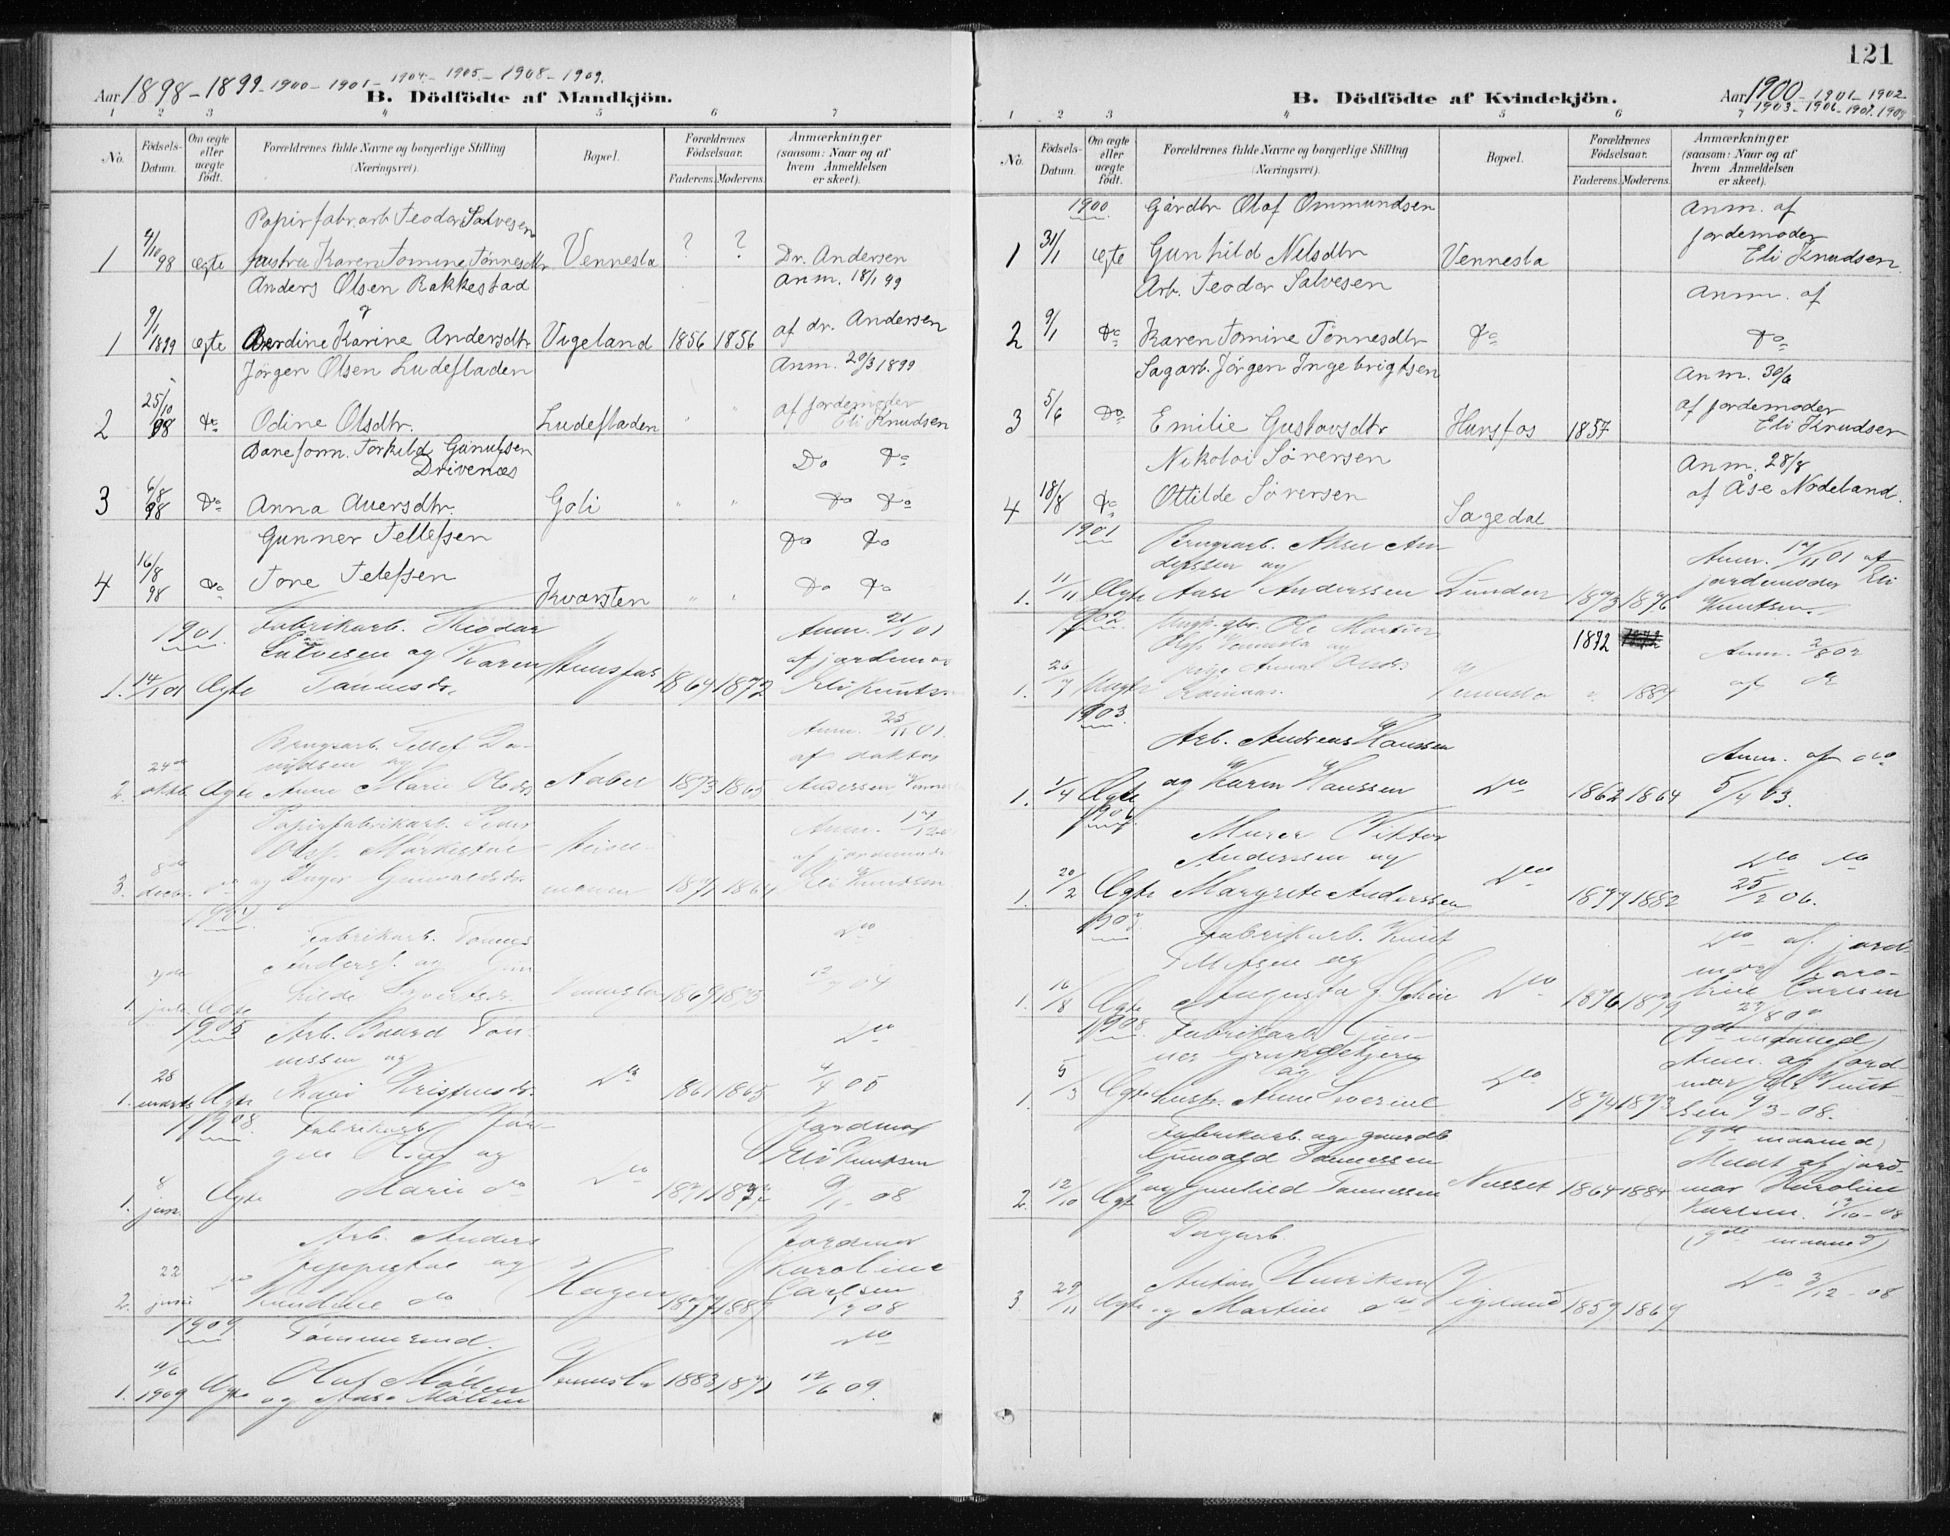 Aar 1898-1899-1900-1901-1904-1905-1908-1909.
B. Dödfödte af Mandkjön.
1 2 3 4 5 6 7
No. Födsels-Datum. Om ægte eller uægte födt. Forældrenes fulde Navne og borgerlige Stilling (Næringsvei). Bopæl. Forældrenes Födselsaar. Faderens. Moderens. Anmærkninger (saasom: Naar og af hvem Anmeldelsen er skeet).
Papirfabr.arb Teodor Salvesen
1 4/10 98 ægte hustru Karen Tomine Tönnesdtr Vennesla ? ? Dr. Andersen
Anders Olsen Rakkestad Anm. 18/1 99
1 9/1 1899 ægte Berdine Karine Andersdtr Vigeland 1856 1856 af dr. Andersen
Jörgen Olsen Ludefladen Anm. 20/3 1899
2 25/10 98 Do Odine Olsdtr. Ludefladen " " af jordemoder Eli Knudsen
Baneform. Torkild Gunulfsen Drivenæs Do Do
3 6/8 98 Do Anna Auersdtr. Goli " " Do Do
Gunner Tellefsen Do Do
4 16/8 98 Do Tone Telefsen Kvarsten " " Do Do
1901. Fabrikarb. Theodor Anm. 21/1 01
Salvesen og Karen Hunsfos af jordemor
1. 14/1 01 Ægte Tönnesdr. 1864 1872 Eli Knuts.
Brugsarb. Tellef Anm. 25/11 01.
af doktor
2. 24de oktb. Ægte Anne Marie Olsdr Aabel 1873 1865 Andersen
Papirfabrikarb. Peder Anm.
af jordemoder
3. 8de decbr. og Inger Gunvaldsdr. 1871 1864 Eli Knudsen
1904. Fabrikarb. Tönnes Do
Andersf. og Gun
1. Ægte hilde Vennesla 1869 1873
1905 Arb. Baard Tön- Do
nessen og
1. 28 marts Ægte Kristensdr. Do 1861 1865 4/4 05
1908. Fabrikarb. Jør- Jordmor
gen og Eli Knutsen
1. 8 jan. Ægte Marie do Do 1871 9/1 - 08
Arb. Anders Jordmor
og Karoline
2. 22 juni do do Hagen 1877 1887 Carlsen 08
1909 Tömmermd. Do
1. 11/6 1909 Ægte Olaf Möller og Aase Möller Vennesla 1883 1871 12/6 09.
121
B. Dödfödte af Kvindekjön.
Aar 1900-1901-1902
1903-1906-1907-1908
1 2 3 4 5 6 7
No. Födsels-Datum. Om ægte eller uægte födt. Forældrenes fulde Navne og borgerlige Stilling (Næringsvei). Bopæl. Forældrenes Födselsaar. Faderens. Moderens. Anmærkninger (saasom: Naar og af hvem Anmeldelsen er skeet).
1900. Gårdbr Olaf Ommundsen Anm. af
jordemoder
1 31/1 ægte Gunhild Nilsdtr Vennesla Eli Knudsen
Arb. Teodor Salvesen Anm. af
2 9/1 Do Karen Tomine Tönnesdtr Do Do
Sagarb. Jörgen Ingebrigtsen Anm. 30/6
3 5/6 Do Emilie Gustavsdtr Hunsfos 1857 af jordemoder Eli Knudsen
Nikolai Sörensen Anm. 28/8
4 18/8 Do Ottilde Sörensen Sagedal af Åse Nodeland.
1901 Brugsarb. Aksel An-
derssen og Anm. 14/11 01 af
1. 11/11 Ægte Aase Anderssen Lunden 1873 1876 jordemoder Eli Knutsen.
1902. Ungk. Ole Martin 1872
Olsf. Vennesla og Anm. 2/8 02
1. 26/7 Uægte pige Anna Vennesla " 1884 af
1903. Arb. Andreas Hanssen Anm. af do
1. 1/4 Ægte og Karen Hanssen Do 1862 1864 5/4 03.
1906 Murer Viktor
Anderssen og Do Do
1. 20/2 Ægte Margrete Anderssen Do 1877 1882 25/2 06.
Fabrikarb. Knut Do af jord-
og mor Karo-
1. 16/8 Ægte Augusta J. Do 1876 1879 line Carlsen
1908. Fabrikarb. Gun- (9de maaned)
ner og Anm. af jord-
1. 5/3 Ægte hustr. Anne Severine Do 1874 1873 mor Eli Knut-
sen 9/3 - 08.
Fabrikarb. og gaardb. (9de maaned)
Gunvald Tønnessen Meldt af jord-
2. 12/10 Ægt. og Gunhild Tønnessen Næsset 1864 1884 mor Karoline
Karlsen. /10 - 08
Dagarb. (9de maaned)
3. 29/11 Ægte Anton Henriksen og Martine do Vigeland 1857 1867 Do 3/12 - 08